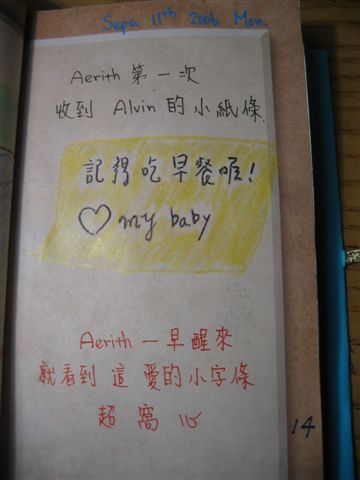 Sepu 11th 2006 Mon.
Aerith 第一次
收到 Alvin 的小紙條
記得吃早餐喔!
♡ my baby
Aerith 一早醒來
就看到這愛的小字條
超窩心
14